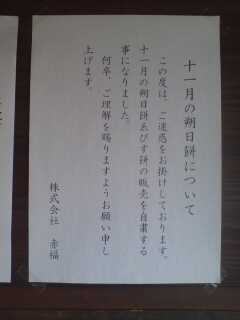 十一月の朔日餅について
この度は、ご迷惑をお掛けしております。
十一月の朔日餅ゑびす餅の販売を自粛する
事になりました。
何卒、ご理解を賜りますようお願い申し
上げます。
株式会社 赤福